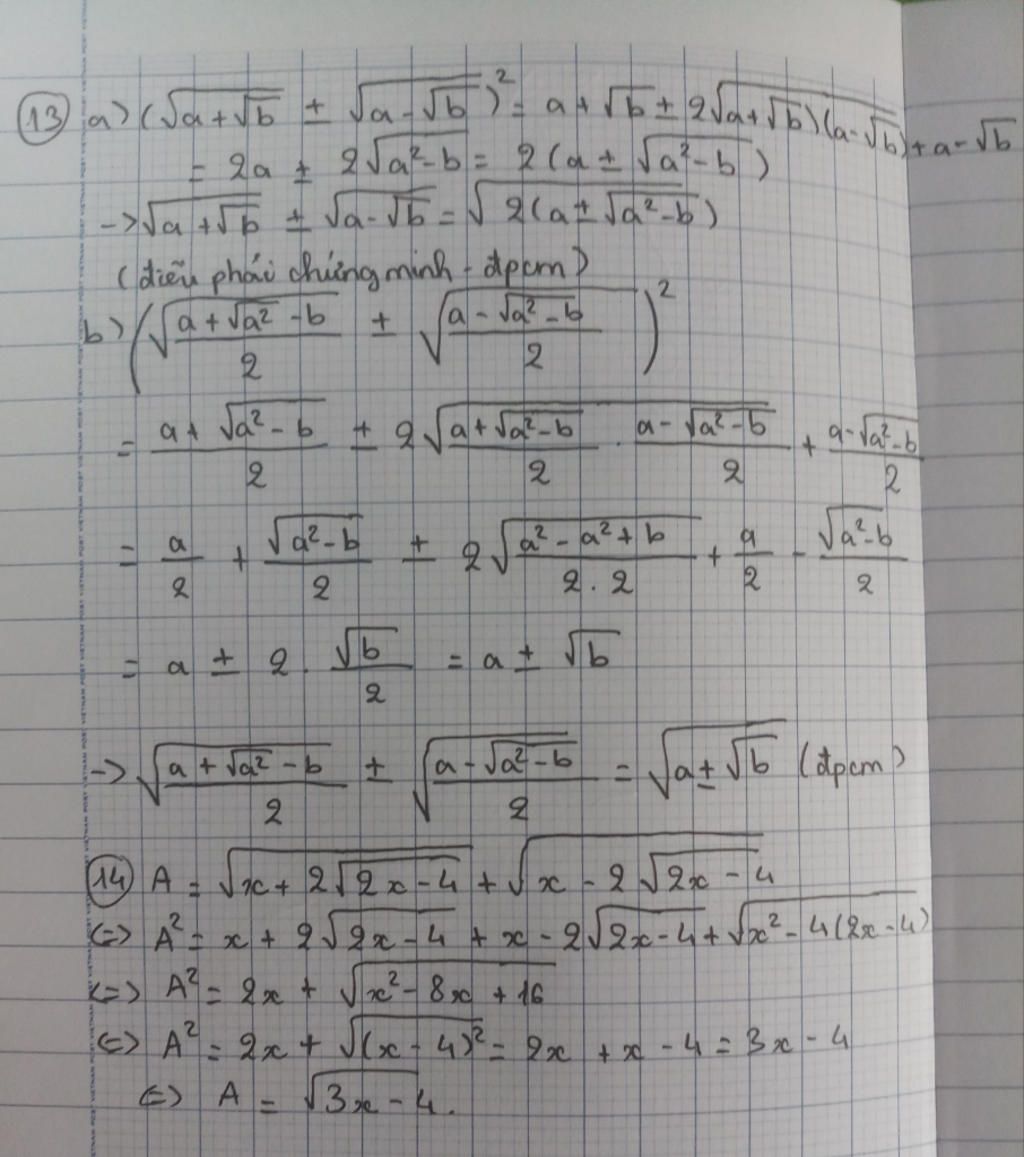 13 a) (√(a+√b) ± √(a-√b))² = a + √b ± 2√((a+√b)(a-√b)) + a - √b
= 2a ± 2√(a²-b) = 2(a ± √(a²-b))
-> √(a+√b) ± √(a-√b) = √(2(a ± √(a²-b)))
(điều phải chứng minh - đpcm)
b) (√((a+√(a²-b))/2) ± √((a-√(a²-b))/2))²
= (a+√(a²-b))/2 ± 2√((a+√(a²-b))/2 . (a-√(a²-b))/2) + (a-√(a²-b))/2
= a/2 + √(a²-b)/2 ± 2√((a²-a²+b)/(2.2)) + a/2 - √(a²-b)/2
= a ± 2 . √b/2 = a ± √b
-> √((a+√(a²-b))/2) ± √((a-√(a²-b))/2) = √(a±√b) (đpcm)
14 A = √(x+2√(2x-4)) + √(x-2√(2x-4))
<=> A² = x + 2√(2x-4) + x - 2√(2x-4) + √(x²-4(2x-4))
<=> A² = 2x + √(x²-8x+16)
<=> A² = 2x + √((x-4)²) = 2x + x - 4 = 3x - 4
<=> A = √(3x-4).